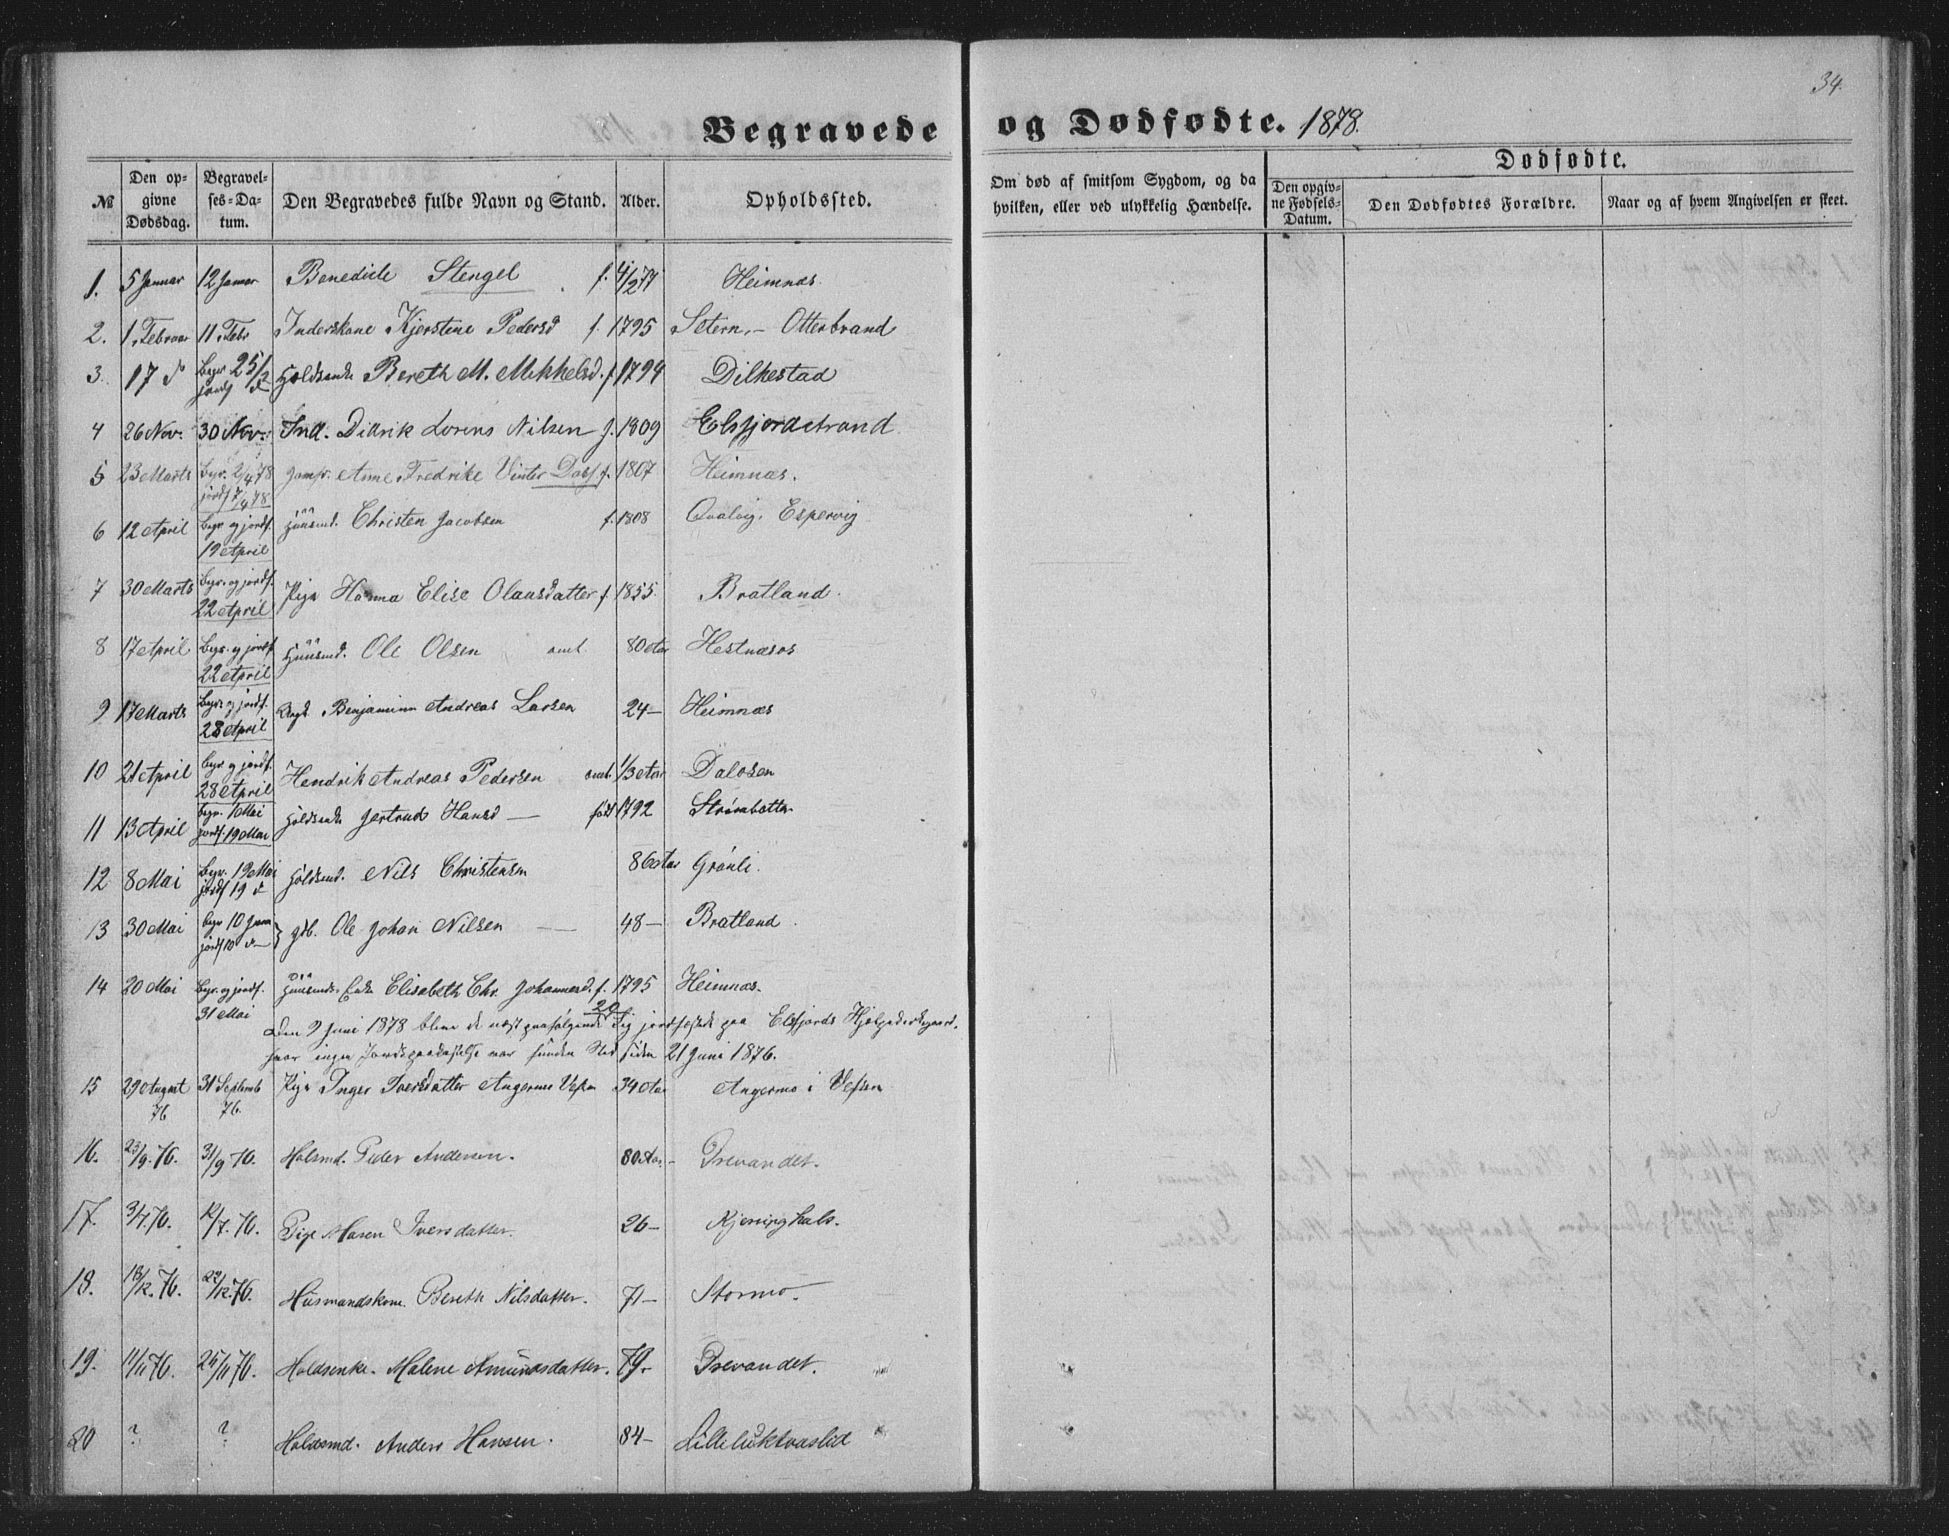 34.
Begravede og Dødfødte. 1878.
№ Den op-givne Dødsdag. Begravel-ses-Da-tum. Den Begravedes fulde Navn og Stand. Alder. Opholdssted.
Om død af smitsom Sygdom, og da hvilken, eller ved ulykkelig Hændelse.
Dødfødte.
Den opgiv-ne Fødsels-Datum. Den Dødfødtes Forældre. Naar og af hvem Angivelsen er skeet.
1. 5 Januar 12 Januar Benedicte Stengel f. 4/2 77 Heimnæs
2. 1. Februar 11. Febr Inderskone Kjerstine Pedersd f. 1795 Setern - Otterbrand
3. 17 d Begr 25/2 jordf d Holdsenke Bereth M. Mikkelsd. f. 1794 Dilkestad
4 26 Nov. 30 Nov. Ind. Didrik Lorens Nilsen f. 1809 Elsfjordstrand
5 23 Marts Begr. 2/4 78 jordf 7/4 78 Jomfr. Anne Fredrike Vinter Dass f. 1807 Heimnæs.
6 12 April begr og jordf. 19 April Huusmd. Christen Jacobsen f. 1808 Qvalvig, Espervig
7 30 Marts begr. og jordf. 22 April Pige Hanna Elise Olausdatter f 1855. Bratland.
8 17 April begr. og jordf 22 April Huusmd. Ole Olsen omt. 80 Aar Hestnæsos
9 17 Marts Begr. og jordf. 28 April Ungk. Benjaminn Andreas Larsen 24 — Heimnæs
10 21 April begr og jordf. 28 April Hendrik Andreas Pedersen omt. 1/3 Aar Dalosen
11 13 April begr. 10 Mai jordf. 19 Mai Holdsenke Gertrud Hansd — født 1792
12 8 Mai Begr. 19 Mai jordf 19 d Holdsmd. Nils Christensen 86 Aar Grønli.
13 30 Mai begr 10 Juni jordf 10 d — gdb. Ole Johan Nilsen — 48 — Bratland.
14 20 Mai Begr. og jordf. 31 Mai Huusmds Enke Elisabeth Chr. Johannesd. f. 1795 Heimnæs.
Den 9 Juni 1878 bleve de næst paafølgende 20 Lig jordfæstede paa Elsfjords Hjelpekirkegaard,
hvor ingen Jordspaakastelse var funden Sted siden 21 Juni 1876.
15 29 August 76 31 Septemb 76. Pige Inger Iversdatter Angermo Vefsn 34 Aar Angermo i Vefsen
16. 23/9. 76. 31/9 76. Holsmd. Peder Andersen. 80 Aar - Drevandet.
17. 3/7. 76. 12/7. 76. Pige Maren Iversdatter. 26 — Kjerringhals.
18. 18/12. 76. 22/12. 76. Husmandskone. Bereth Nilsdatter. 71 — Stormo.
19. 11/11 76. 25/11 76. Holdsenke. Malene Amundsdatter. 79. Drevandet.
20 ? ? Holdsmd. Anders Hansen. 84 — Lilleluktvaslid